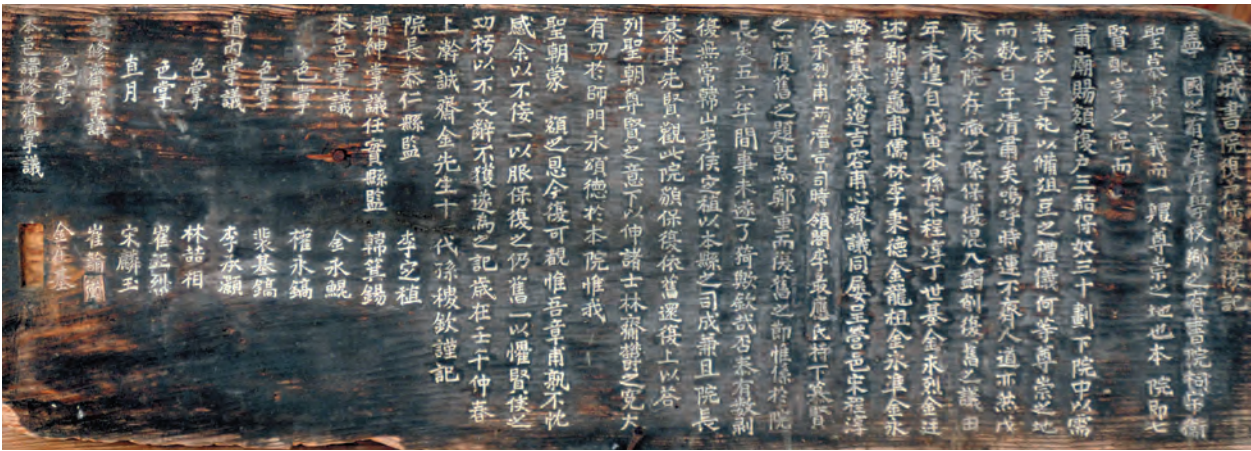 武城書院復戶保奴復舊記
夢 國之有庠序學校鄉之有書院祠宇衛
聖慕賢之義而一體尊崇之地也本 院卽七
賢配享之院而
肅廟賜額復戶三結保奴三十劃下院中以需
春秋之享祀以備俎豆之禮儀何等尊崇之地
而數百年淸肅矣嗚呼時運不齊人道亦然戊
辰各院存撤之際保復混入鐲剞復舊之議田
年未遑自戊寅本孫宋程淳丁世基金永列金廷
述鄭漢鼇甫儒林李秉德金龍柤金永準金永
璐 基燒造言宓甫心齋議同屢呈營邑宋程淳
金永列甫再潛京司時領閤李最應氏特下慕賢
之心復舊之題旣爲鄭重而復舊之節惟係於院
長矣五六年間事未遂了猗歟欽哉否泰有數剝
復無常韓山李侯空稙以本縣之司成兼且一院長
慕其先賢觀此院額保復依舊還復上以答
列聖朝尊賢之意下以伸諸士林齋鬱之寃大
有功於師門永頌德於本院惟我
聖朝蒙 額之恩今復可觀惟吾章甫孰不忱
感余以不佞一以服保復之仍舊一以懼賢侯之
功朽以不文辭不獲遂爲之記歲在壬午仲春
上澣誠齋金先生十 代孫稷欽謹記
院長泰仁縣監 李空稙
搢紳掌議任實縣監 韓箕錫
本邑掌議 金永鯤
色掌 權永鎬
色掌 裴基鎬
道內掌議 李承灝
色掌 林喆相
色掌 崔正烈
直月 宋麟玉
講修齋掌議 崔論
色掌 金在基
本邑講修齋掌議